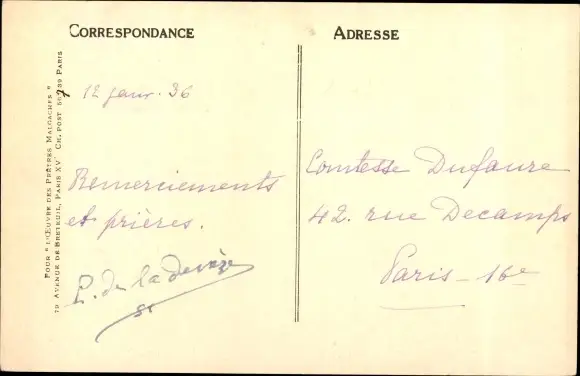 CORRESPONDANCE
12 janv. 36
Remerciements
et prières.
de la devèze
sj
ADRESSE
Comtesse Dufaure
42. rue Decamps
Paris - 16e
POUR "L'ŒUVRE DES PRÊTRES MALGACHES"
79 AVENUE DE BRETEUIL, PARIS XV CH. POST 89 PARIS